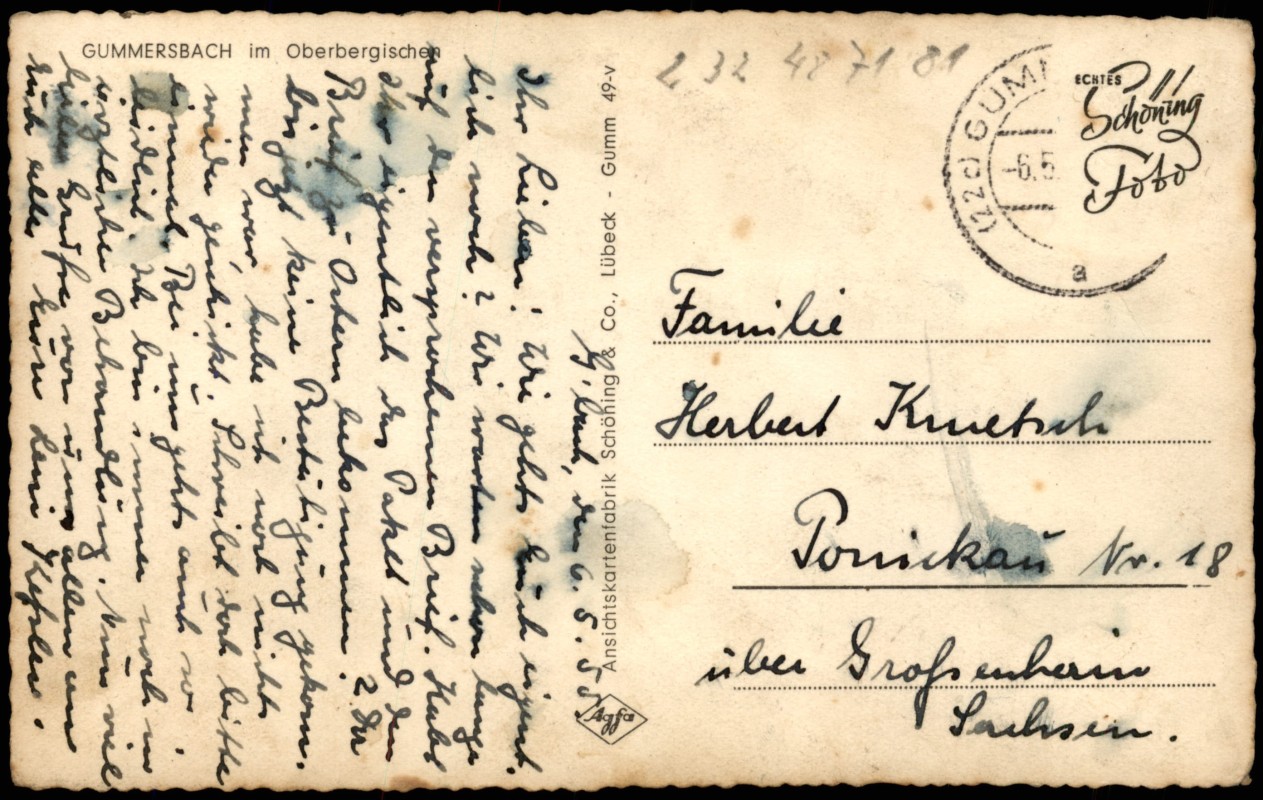 GUMMERSBACH im Oberbergischen
G'bach, den 6. 5. 55
Ihr Lieben! Wie gehts Euch eigent-
lich noch? Wir warten schon lange
auf den versprochenen Brief. Habt
Ihr eigentlich das Paket und den
Brief zu Ostern bekommen? Da
bis jetzt keine Bestätigung gekom-
men war, habe ich noch nichts
wieder geschickt. Schreibt doch bitte
einmal. Bei uns geht's auch so
leidlich. Ich bin immer noch in
ärztlicher Behandlung. Nun viel
liebe Grüße von uns allen an
Euch alle, Eure Leni
Ansichtskartenfabrik Schöning & Co., Lübeck - Gumm 49-v
Agfa
2 32 48 71 81
(22c) GUMM
-6.5.
a
ECHTES
Schöning
Foto
Familie
Herbert
Ponickau Nr. 18
über Großenhain
Sachsen.